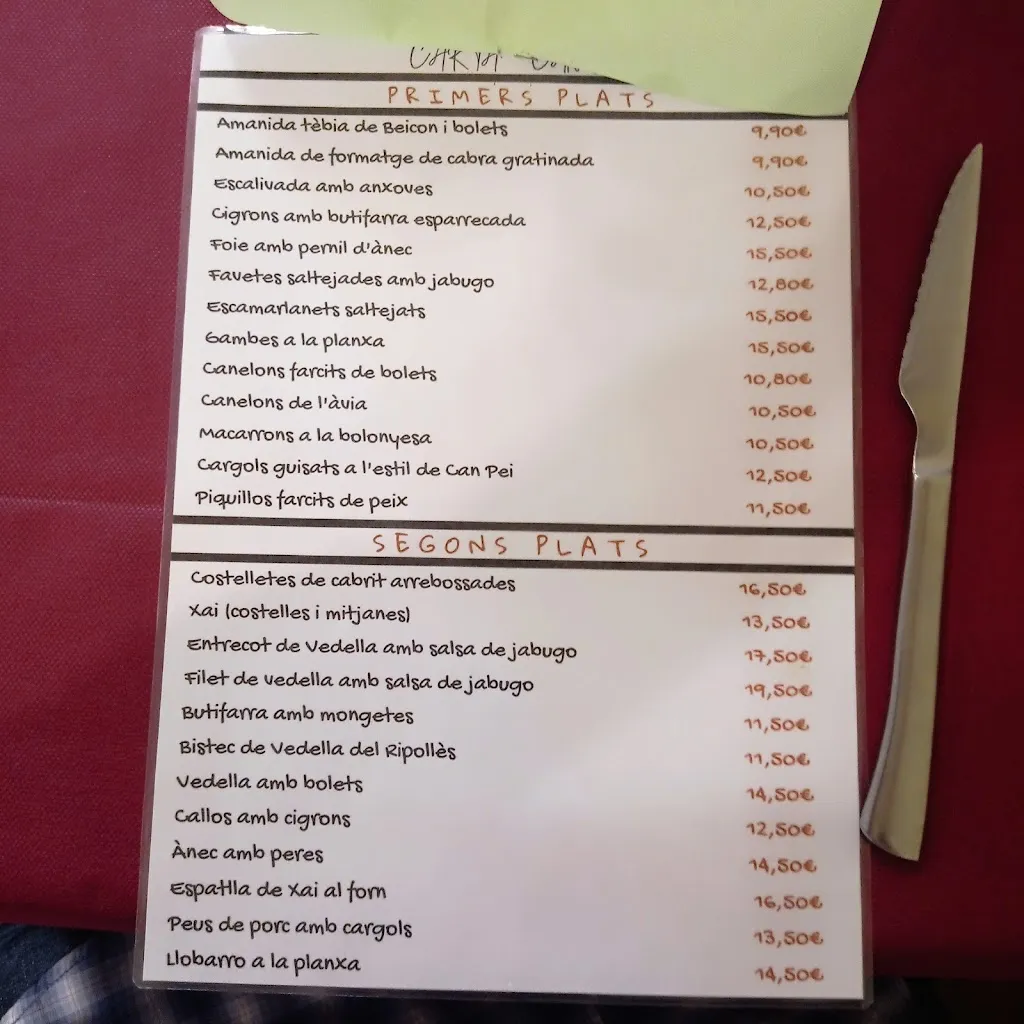 CARTA
PRIMERS PLATS
Amanida tèbia de Beicon i bolets 9,90€
Amanida de formatge de cabra gratinada 9,90€
Escalivada amb anxoves 10,50€
Cigrons amb butifarra esparrecada 12,50€
Foie amb pernil d'ànec 15,50€
Favetes saltejades amb jabugo 12,80€
Escamarlanets saltejats 15,50€
Gambes a la planxa 15,50€
Canelons farcits de bolets 10,80€
Canelons de l'àvia 10,50€
Macarrons a la bolonyesa 10,50€
Cargols guisats a l'estil de Can Pei 12,50€
Piquillos farcits de peix 11,50€
SEGONS PLATS
Costelletes de cabrit arrebossades 16,50€
Xai (costelles i mitjanes) 13,50€
Entrecot de Vedella amb salsa de jabugo 17,50€
Filet de vedella amb salsa de jabugo 19,50€
Butifarra amb mongetes 11,50€
Bistec de Vedella del Ripollès 11,50€
Vedella amb bolets 14,50€
Callos amb cigrons 12,50€
Ànec amb peres 14,50€
Espatlla de Xai al forn 16,50€
Peus de porc amb cargols 13,50€
Llobarro a la planxa 14,50€